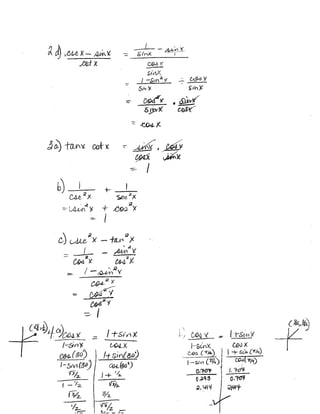 2 d) csc x − sin x / cot x = (1/sin x − sin x) / (cos x/sin x)
= (1 − sin²x)/sin x ÷ cos x/sin x
= cos²x/sin x · sin x/cos x
= cos x
3a) tan x cot x = sin x/cos x · cos x/sin x
= 1
b) 1/csc²x + 1/sec²x
= sin²x + cos²x
= 1
c) sec²x − tan²x
= 1/cos²x − sin²x/cos²x
= (1 − sin²x)/cos²x
= cos²x/cos²x
= 1
4. a) cos x/(1 − sin x) = (1 + sin x)/cos x
cos(30°)/(1 − sin(30°)) | (1 + sin(30°))/cos(30°)
(√3/2)/(1 − ½) | (1 + ½)/(√3/2)
(√3/2)/(½) | (3/2)/(√3/2)
cos x/(1 − sin x) = (1 + sin x)/cos x
cos (π/4)/(1 − sin (π/4)) | (1 + sin (π/4))/cos (π/4)
0.707/0.293 | 1.707/0.707
2.414 | 2.414